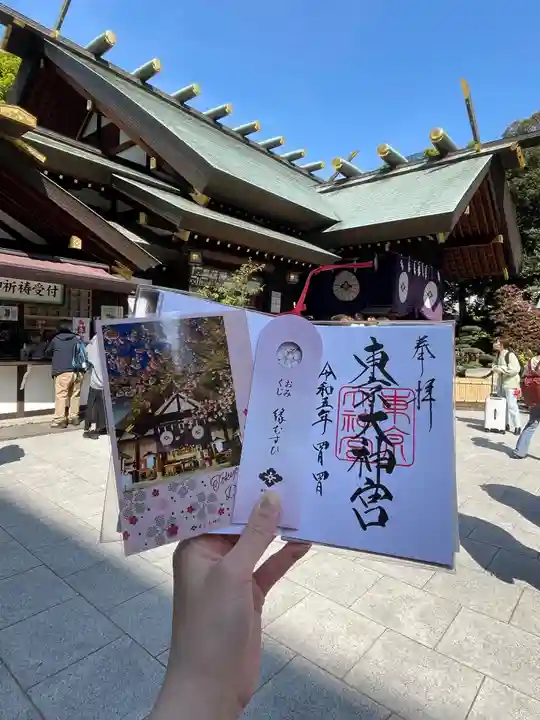 御祈祷受付
おみくじ
縁むすび
奉拝
東京大神宮
東京大神宮
令和五年 四月四日